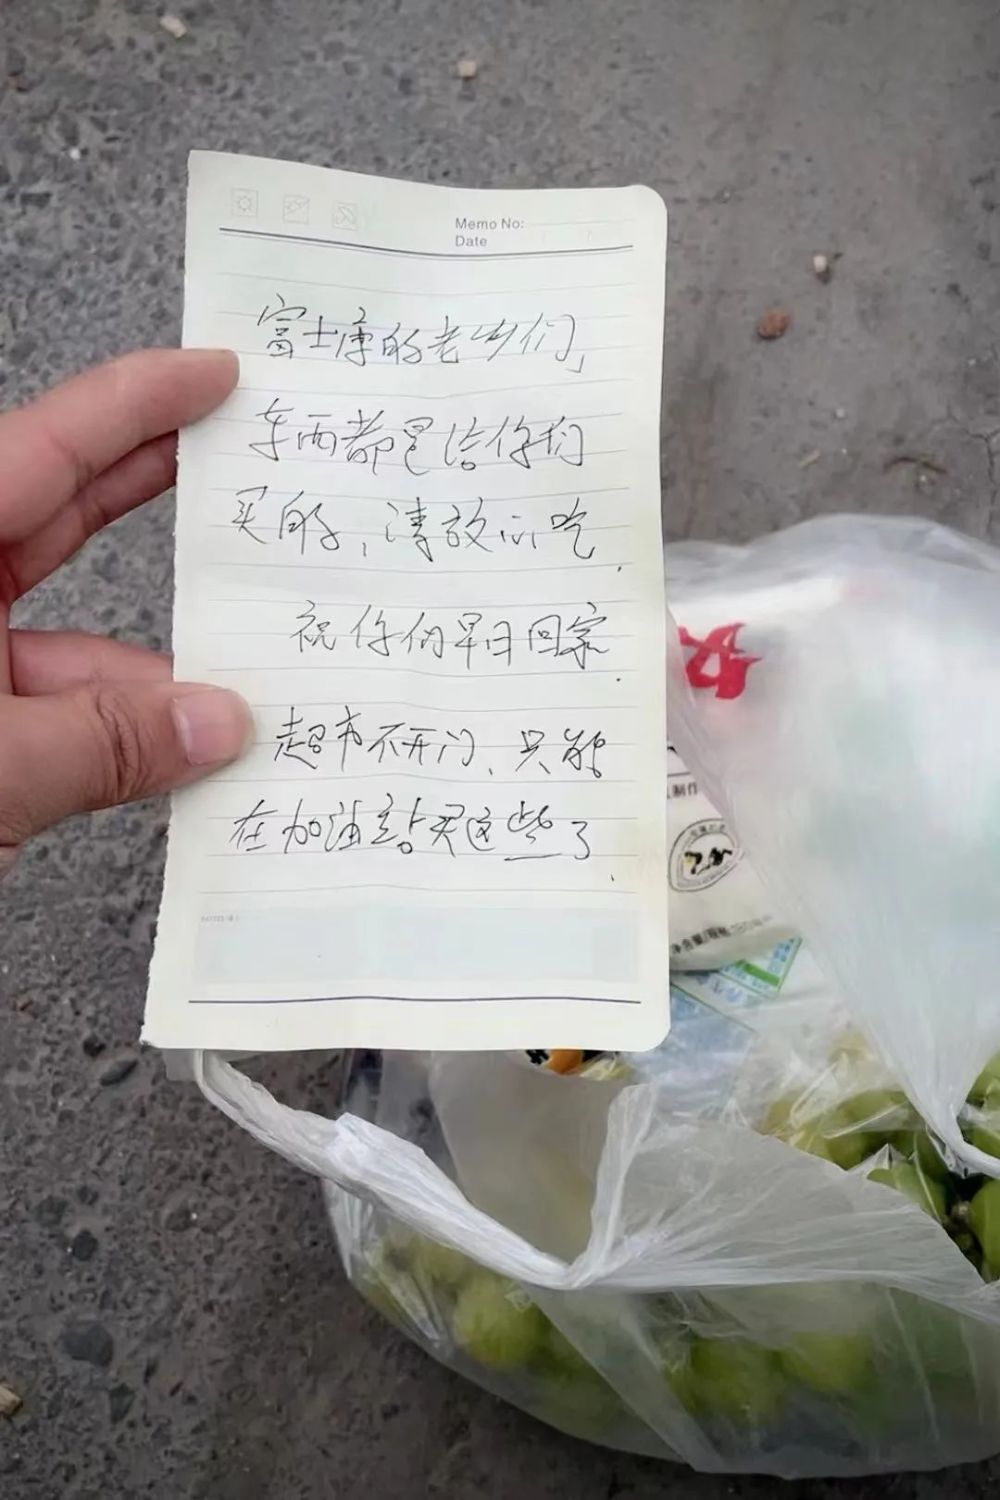 Memo No:
Date
富士康的老乡们,
东西都是给你们
买的,请放心吃.
祝你们早日回家.
超市不开门、只能
在加油站买这些了.